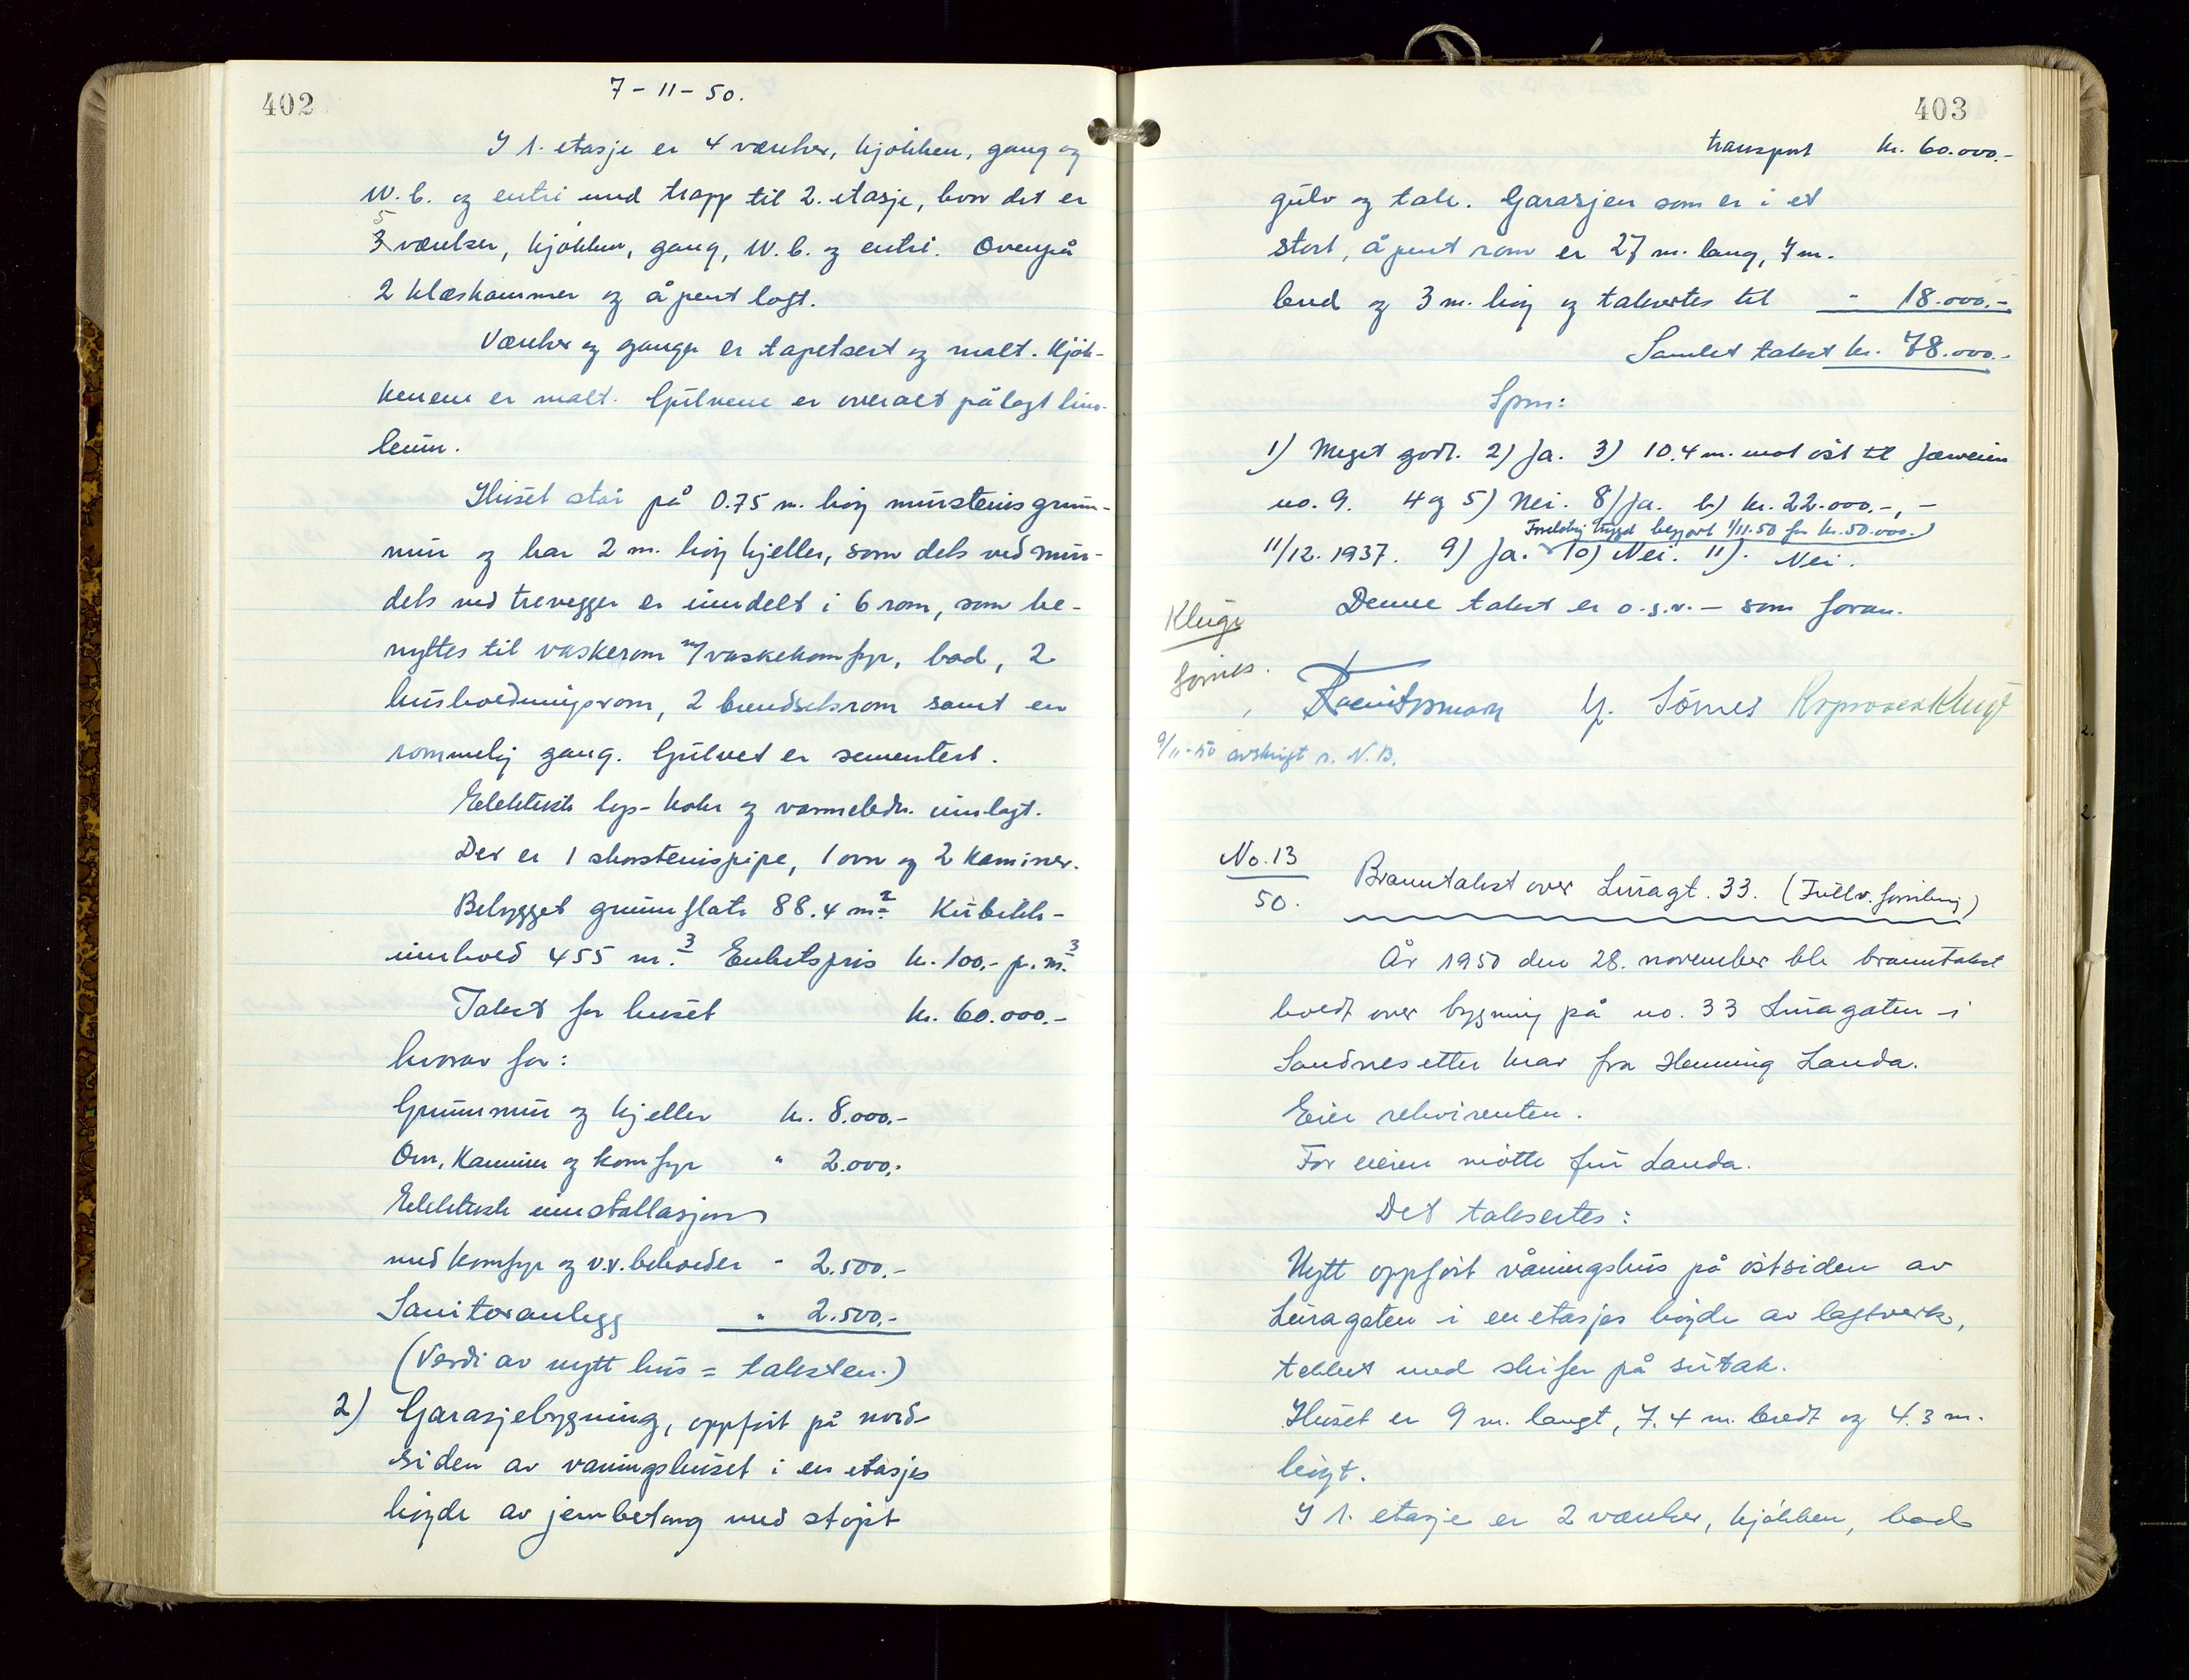 402
7-11-50.
I 1. etasje er 4 værelser, kjökken, gang og
W.C. og entri med trapp til 2. etasje, hvor det er
5 værelser, kjökken, gang, W.C. og entri. Ovenpå
2 klæskammer og åpent loft.
Værelser og ganger er tapetsert og malt. Kjök-
kenene er malt. Gulvene er overalt pålagt lino-
leum.
Huset står på 0.75 m. höy murstensgrunn-
mur og har 2 m. höy kjeller, som dels ved mur-
dels ved trevegger er inndelt i 6 rom, som be-
nyttes til vaskerom m/vaskekomfyr, bad, 2
husholdningsrom, 2 brendselsrom samt en
rommelig gang. Gulvet er sementert.
Elektrisk lys- koke og varmeledn. innlagt.
Der er 1 skorstenspipe, 1 ovn og 2 kaminer.
Bebygget grunnflate 88.4 m.² Kubikk-
innhold 455 m.³ Enhetspris kr. 100,- p. m.³
Takst for huset kr. 60.000.-
hvorav for:
Grunnmur og kjeller kr. 8.000.-
Ovn, Kaminer og komfyr " 2.000.-
Elektrisk innstallasjon
med komfyr og v.v.beholder " 2.500.-
Sanitæranlegg " 2.500.-
(Verdi av nytt hus = taksten.)
2) Garasjebygning, oppfört på nord-
siden av våningshuset i en etasjes
höyde av jernbetong med stöpt
403
transport kr. 60.000.-
gulv og tak. Garasjen som er i et
stort, åpent rom er 27 m. lang, 7 m.
bred og 3 m. höy og taksertes til " 18.000.-
Samlet takst kr. 78.000.-
Spm:
1) Meget godt. 2) Ja. 3) 10.4 m. mot öst til Jærveien
no. 9. 4 og 5) Nei. 8) Ja. b) kr. 22.000.-, -
Foreløbig trygd begjært 1/11.50 for kr. 50.000.)
11/12. 1937. 9) Ja. 10) Nei. 11). Nei.
Denne takst er o.s.v. - som foran.
Kluge
Sörnes.
Y. Sörnes
9/11-50 avskrift s. N.B.
No. 13
50.
Branntakst over Luragt. 33. (Fullv. forsikring)
År 1950 den 28. november ble branntakst
holdt over bygning på no. 33 Luragaten i
Sandnes etter krav fra Henning Landa.
Eier rekvirenten.
For eieren mötte fru Landa.
Det taksertes:
Nytt oppfört våningshus på östsiden av
Luragaten i en etasjes höyde av laftverk,
tekket med skifer på sutak.
Huset er 9 m. langt, 7.4 m. bredt og 4.3 m.
höyt.
I 1. etasje er 2 værelser, kjökken, bad